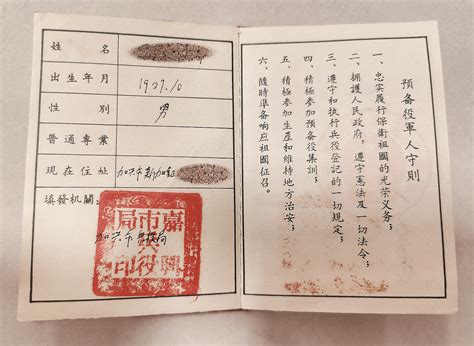 姓名
出生年月 1927.10
性別 男
普通專業
現在住址 加兴市
填發机關:
加兴市兵役局
嘉興市兵役局印
預备役軍人守則
一、忠实履行保衛祖國的光荣义务;
二、擁護人民政府,遵守憲法及一切法令;
三、遵守和执行兵役登記的一切規定;
四、積極参加預备役集訓;
五、積極参加生產和维持地方治安;
六、隨時準备响应祖國征召。